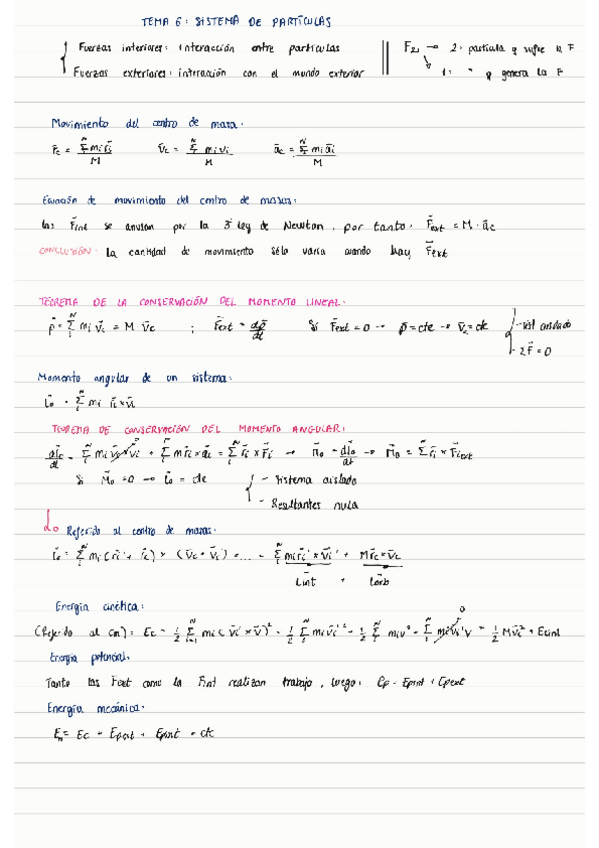 TEMA 6: SISTEMA DE PARTÍCULAS
Fuerzas interiores: interacción entre partículas
Fuerzas exteriores: interacción con el mundo exterior
F₂₁ → 2: partícula q sufre la F
1: " q genera la F
Movimiento del centro de masa:
r̄c = Σ mi r̄i / M    v̄c = Σ mi v̄i / M    āc = Σ mi āi / M
Ecuación de movimiento del centro de masas:
Las F̄int se anulan por la 3ª ley de Newton, por tanto: F̄ext = M · āc
CONCLUSIÓN: La cantidad de movimiento sólo varía cuando hay F̄ext
TEOREMA DE LA CONSERVACIÓN DEL MOMENTO LINEAL:
p̄ = Σ mi v̄i = M v̄c ; F̄ext = dp̄/dt    Si F̄ext = 0 → p̄ = cte → v̄c = cte
- sist aislado
- ΣF̄ = 0
Momento angular de un sistema:
L̄o = Σ mi r̄i × v̄i
TEOREMA DE CONSERVACIÓN DEL MOMENTO ANGULAR:
dL̄o/dt = Σ mi v̄i × v̄i + Σ mi r̄i × āi = Σ r̄i × F̄i → M̄o = dL̄o/dt → M̄o = Σ r̄i × F̄iext
Si M̄o = 0 → L̄o = cte
- Sistema aislado
- Resultantes nula
Referido al centro de masas:
L̄o = Σ mi (r̄i' + r̄c) × (v̄c + v̄i') = ... = Σ mi r̄i' × v̄i' + M r̄c × v̄c
L̄int + L̄orb
Energía cinética:
(Referido al CM): Ec = 1/2 Σ mi (v̄i' × v̄)² = 1/2 Σ mi v̄i'² + 1/2 Σ mi v² + Σ mi v̄i' v = 1/2 M v̄c² + Ecint
0
Energía potencial:
Tanto las Fext como la Fint realizan trabajo, luego: Ep = Epint + Epext
Energía mecánica:
Em = Ec + Epext + Epint = cte